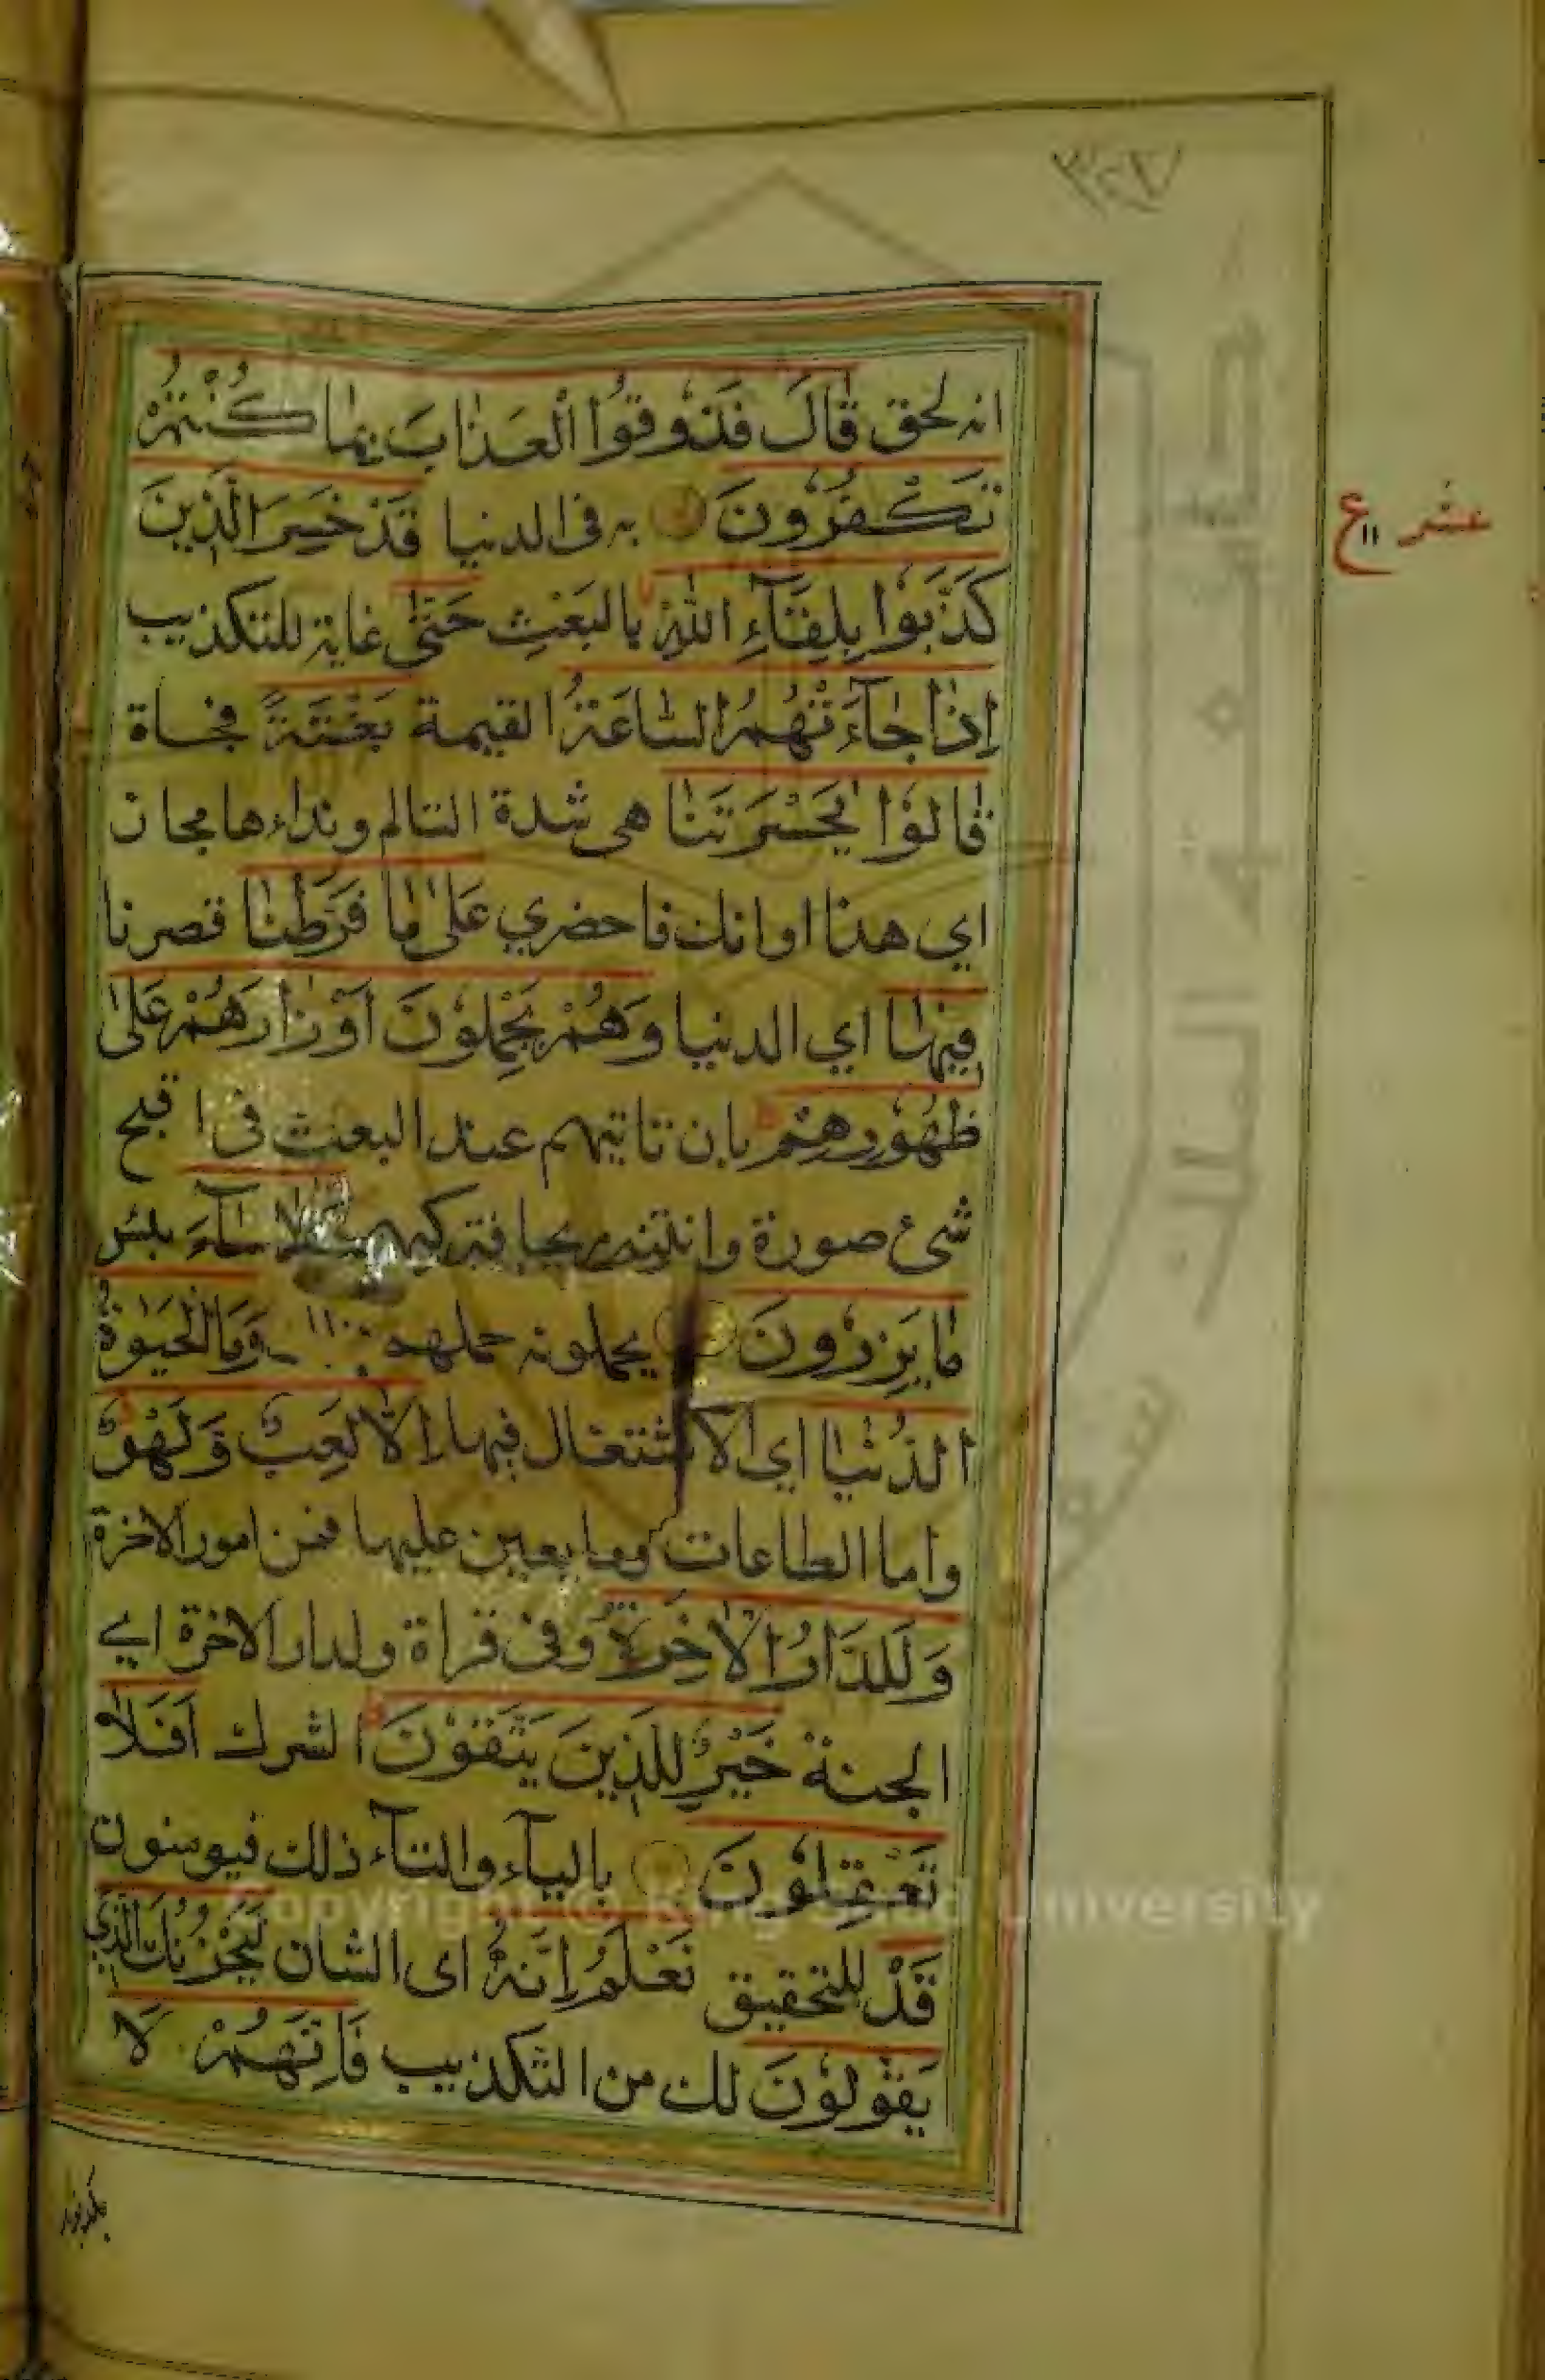 ٣٢٧
انه لحق قَالَ فَذُوقُوا الْعَذَابَ بِمَا كُنْتُمْ
تَكْفُرُونَ به فى الدنيا قَدْ خَسِرَ الَّذِينَ
كَذَّبُوا بِلِقَآءِ اللّٰهِ بالبَعْثِ حَتّٰى غاية للتكذيب
اِذَا جَآءَتْهُمُ السَّاعَةُ القيمة بَغْتَةً فجاة
قَالُوْا يٰحَسْرَتَنَا هى شدة التالم ونداءها مجاز
اي هذا اوانك فاحضري عَلىٰ مَا فَرَّطْنَا قصرنا
فِيْهَا اي الدنيا وَهُمْ يَحْمِلُوْنَ اَوْزَارَهُمْ عَلىٰ
ظُهُوْرِهِمْ بان تاتيهم عند البعث فى اقبح
شئ صورة وانتنه ريحا فتركبهم اَلَا سَآءَ بئس
مَا يَزِرُونَ يحملونه حملهم وَمَا الْحَيٰوةُ
الدُّنْيَا اي الاشتغال فيها اِلَّا لَعِبٌ وَّلَهْوٌ
واما الطاعات وما يعين عليها فمن امور الاخرة
وَلَلدَّارُ الْاٰخِرَةُ وفى قراة ولدار الاخرة اي
الجنة خَيْرٌ لِلَّذِينَ يَتَّقُوْنَ الشرك اَفَلَا
تَعْقِلُوْنَ باليآء والتآء ذلك فيومنون
قَدْ للتحقيق نَعْلَمُ اِنَّهُ اى الشان لَيَحْزُنُكَ الَّذِي
يَقُوْلُوْنَ لك من التكذيب فَاِنَّهُمْ لَا
عشر ع ١١
يكذبونك
Copyright © King Saud University